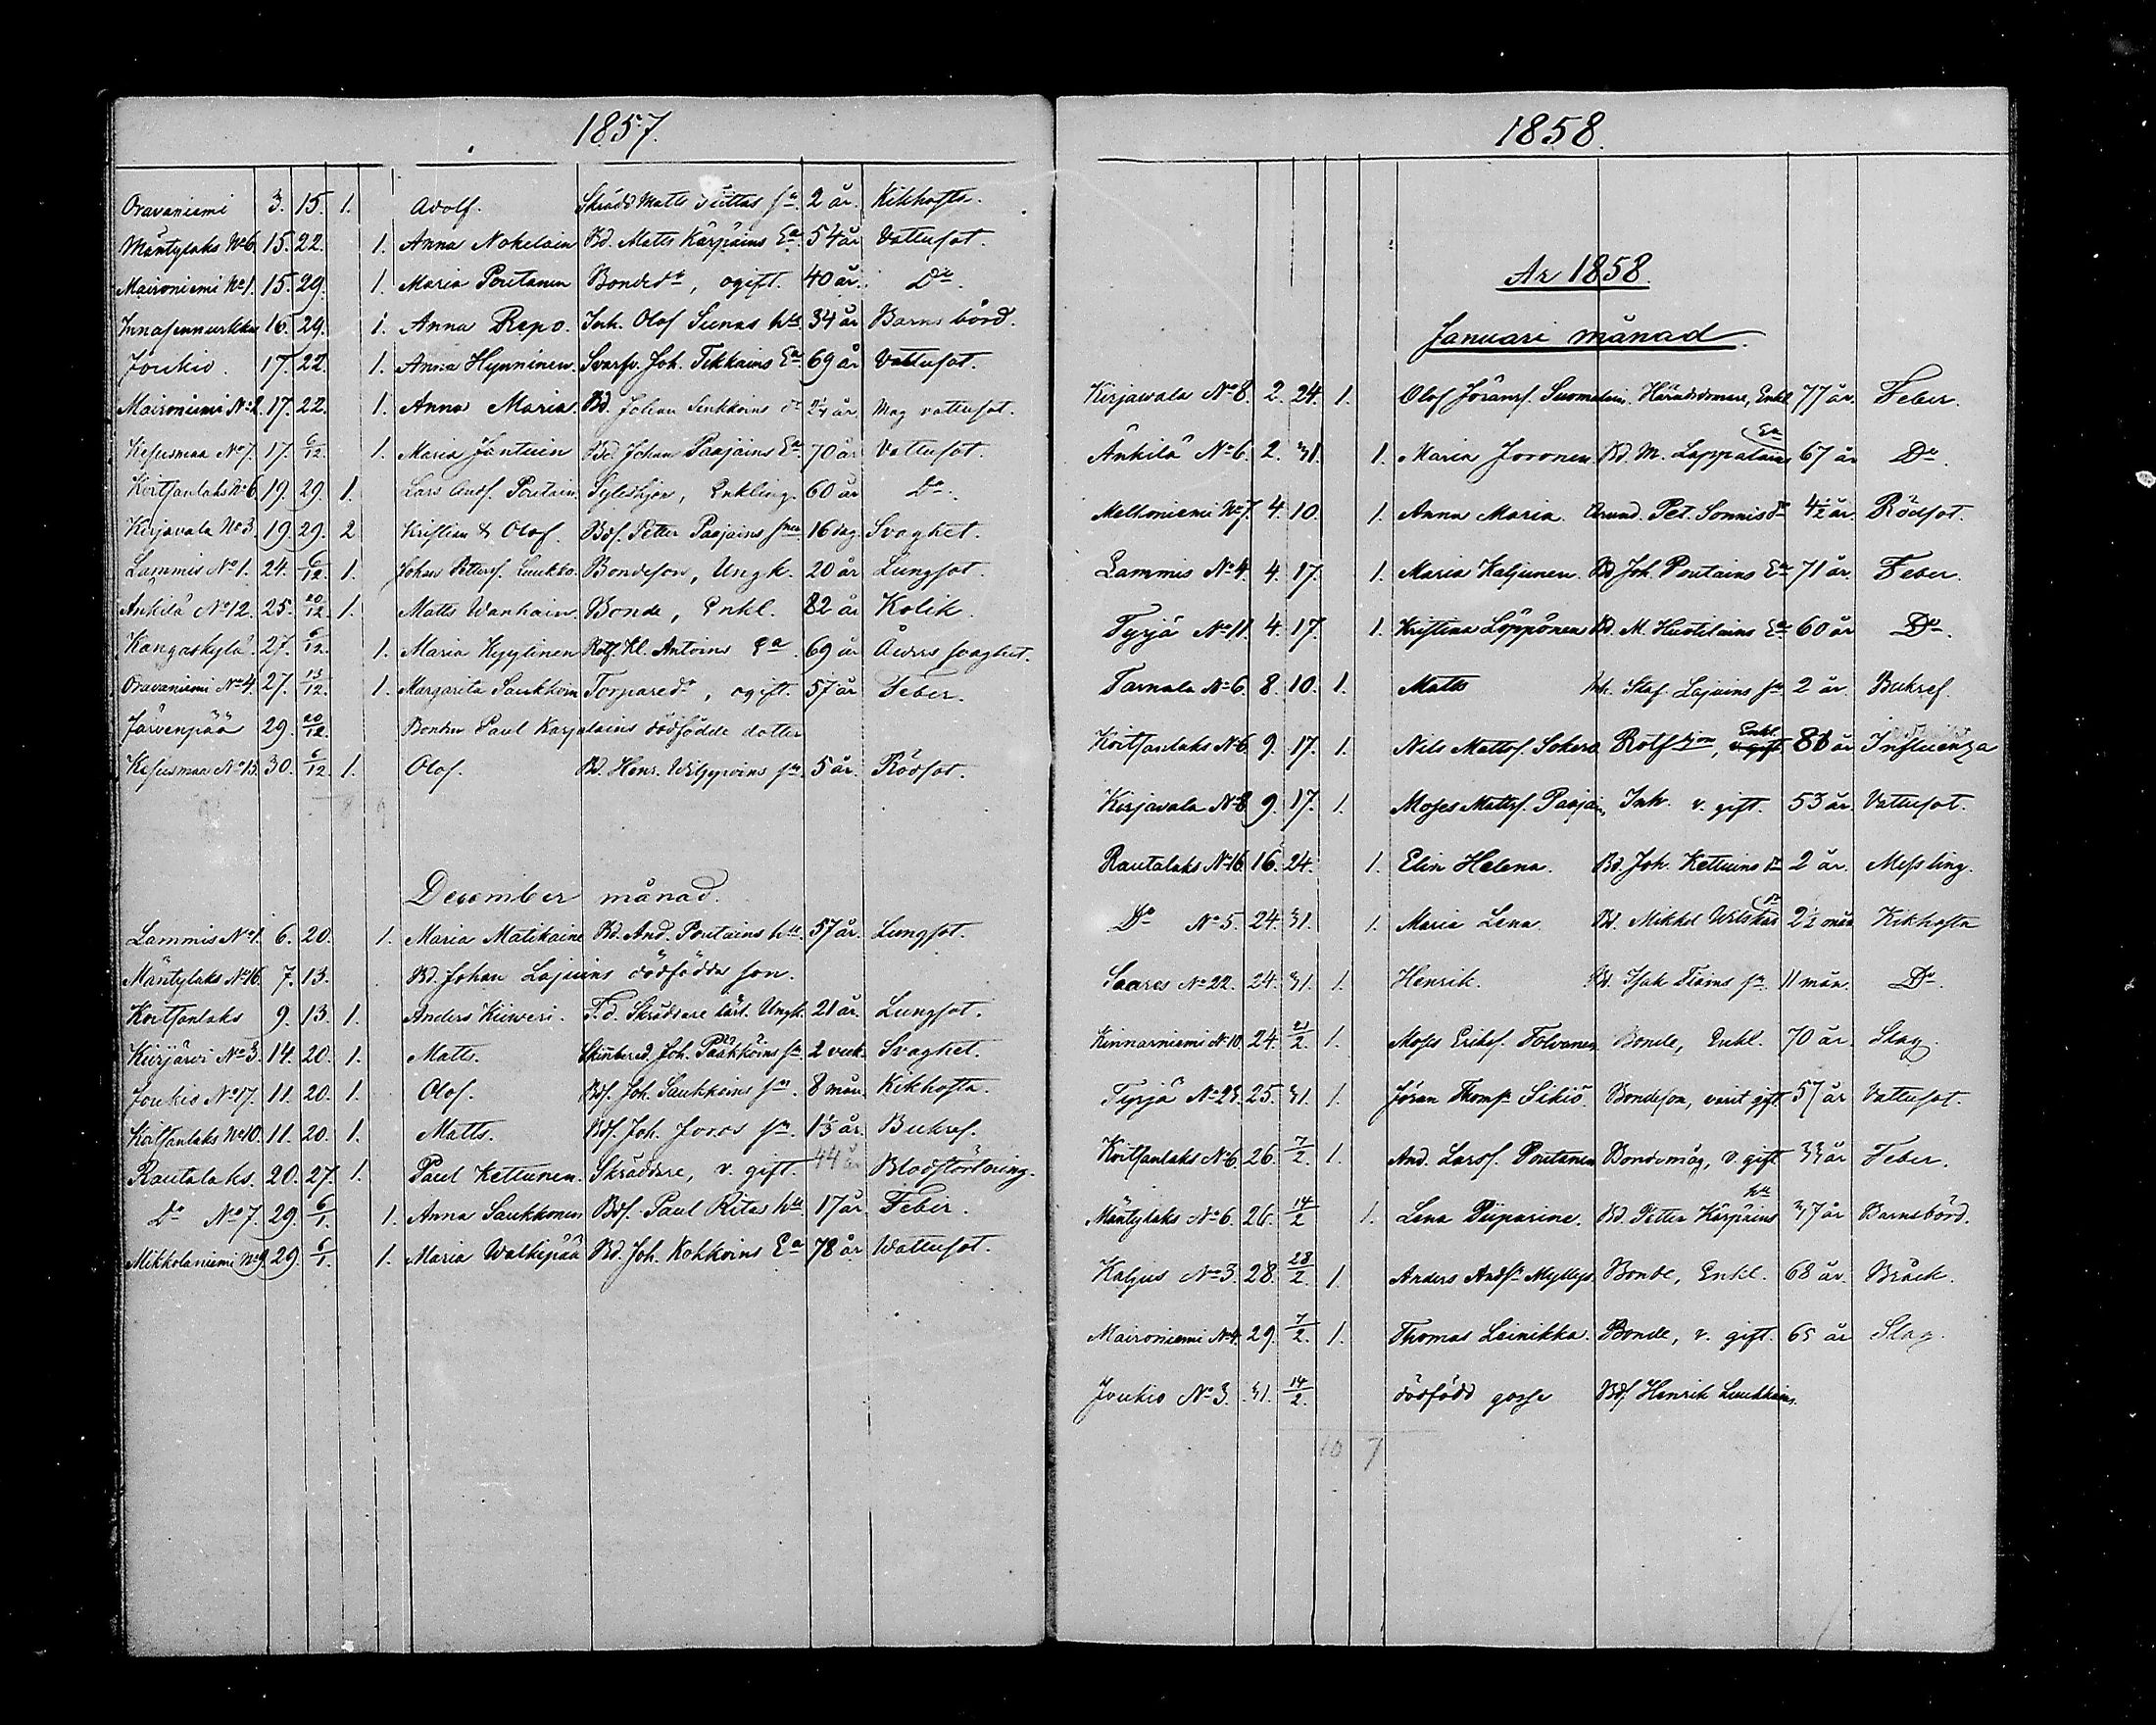 1857.
Oravaniemi 3. 15. 1. Adolf. Skrädd Matts Tuttas sn. 2 år. Kikhosta.
Mäntylaks No 6. 15. 22. 1. Anna Nokelain Bd. Matts Kärpäins Ea. 54 år Vattusot.
Maironiemi No 1. 15. 29. 1. Maria Poutanen Bondedr, ogift. 40 år. Do.
16. 29. 1. Anna Repo. Inh. Olof Sunas hu 34 år Barnsbörd.
Joukio. 17. 22. 1. Anna Hynninen Svarfv. Joh. Tikkains Ea 69 år Vattusot.
Maironiemi No 2. 17. 22. 1. Anna Maria. Bd. Johan Leukkoins dr år Mag vattusot.
Kesusmaa No 7. 17. 6/12. 1. Maria Jantuin Bd. Johan Paajains Ea. 70 år Vattusot.
Koitsanlaks No 6. 19. 29. 1. Lars Ands. Poutain. Syteshjon, Enkling. 60 år Do.
Kirjavala No 3. 19. 29. 2 Kristian & Olof. Bds. Petter Paajains sner 16 dag. Svaghet.
Lammis No 1. 24. 6/12. 1. Johan Petters. Luukko. Bondeson, Ungk. 20 år Lungsot.
Ankilä No 12. 25. 20/12. 1. Matts Wanhain. Bonde, Enkl. 82 år Kolik.
Kangaskylä. 27. 6/12. 1. Maria Kyylinen Rotf. Kl. Antoins Ea. 69 år Ålders svaghet.
Oravaniemi No 4. 27. 13/12. 1. Margarita Saukkoin Torparedr, ogift. 57 år Feber.
Järvenpää 29. 20/12. Bonden Paul Karjalains dödfödde dotter
Kesusmaa No 15. 30. 6/12. 1. Olof. Bd. Henr. Wilppoins sn. 5 år. Rödsot.
8 9
December månad.
Lammis No 1. 6. 20. 1. Maria Matikaine Bd. And. Poutains hu. 57 år. Lungsot.
Mäntylaks No 16. 7. 13. Bd. Johan Lajuins dödfödde son.
Koitsanlaks 9. 13. 1. Anders Kiiveri. F.d. Skräddare lärl. Ungk. 21 år. Lungsot.
Kiirjärvi No 3. 14. 20. 1. Matts. Skinbered. Joh. Pääkköins sn 2 veck. Svaghet.
Joukio No 17. 11. 20. 1. Olof. Bds. Joh. Saukkoins sn. 8 mån. Kikhosta.
Koitsanlaks No 10. 11. 20. 1. Matts. Bds. Joh. Joros sn. 1 1/3 år. Bukref.
Rautalaks. 20. 27. 1. Paul Kettunen. Skräddare, v. gift. 44 år Blodstörtning.
Do No 7. 29. 6/1. 1. Anna Saukkonen Bds. Paul Ritas hu. 17 år Feber.
Mikkolaniemi No 9. 29. 6/1. 1. Maria Walkipää Bd. Joh. Kokkoins Ea 78 år Wattusot.
1858.
Ar 1858.
Januari månad.
Kirjavala No 8. 2. 24. 1. Olof Jöransf. Suomalain. Häradsdomare, Enkl 77 år. Feber.
Änkilä No 6. 2. 31. 1. Maria Joronen Bd. M. Lappalains Ea 67 år Do.
Melkoniemi No 7. 4. 10. 1. Anna Maria. Arrend. Pet. Sonnis dr 4 1/2 år. Rödsot.
Lammis No 4. 4. 17. 1. Maria Kaljunen. Bd Joh. Poutains Ea 71 år. Feber.
Tyrjä No 11. 4. 17. 1. Kristina Löppönen Bd. M. Huotilains Ea 60 år Do.
Tarnala No 6. 8. 10. 1. Matts Inh. Staf. Lajuins sn 2 år. Bukref.
Koitsanlaks No 6 9. 17. 1. Nils Mattsf. Sokero Rotf hjon, Enkl. v. gift 81 år Influenza
Kirjavala No 8 9. 17. 1. Moses Mattsf. Paajain, Inh. v. gift. 53 år. Vattusot.
Rautalaks No 16. 16. 24. 1. Elin Helena. Bd. Joh. Kettuins dr 2 år. Messling.
Do No 5. 24. 31. 1. Maria Lena. Bd. Mikkel Wilskas dr 2 1/2 mån Kikhosta
Saares No 22. 24. 31. 1. Henrik. Bd. Isak Tiains sn. 11 mån. Do.
Kinnarniemi No 10 24. 21/2. 1. Moses Eriksf. Tolvanen. Bonde, Enkl. 70 år. Slag.
Tyrjä No 23. 25. 31. 1. Jöran Thomsn Sikiö. Bondeson, varit gift 57 år Vattusot.
Koitsanlaks No 6. 26. 7/2. 1. And. Larsf. Poutanen Bondemåg, v. gift 33 år Feber.
Mäntylaks No 6. 26. 14/2 1. Lena Piiparine. Bd. Petter Kärpäins hu 37 år Barnsbörd.
Kaljus No 3. 28. 28/2. 1. Anders Andsn Myllys Bonde, Enkl. 68 år. Bråck.
Maironiemi No 4. 29. 7/2. 1. Thomas Leinikka. Bonde, v. gift. 65 år Slag.
Joukio No 3. 31. 14/2. dödfödd gosse Bds. Henrik Luukkains.
10 7